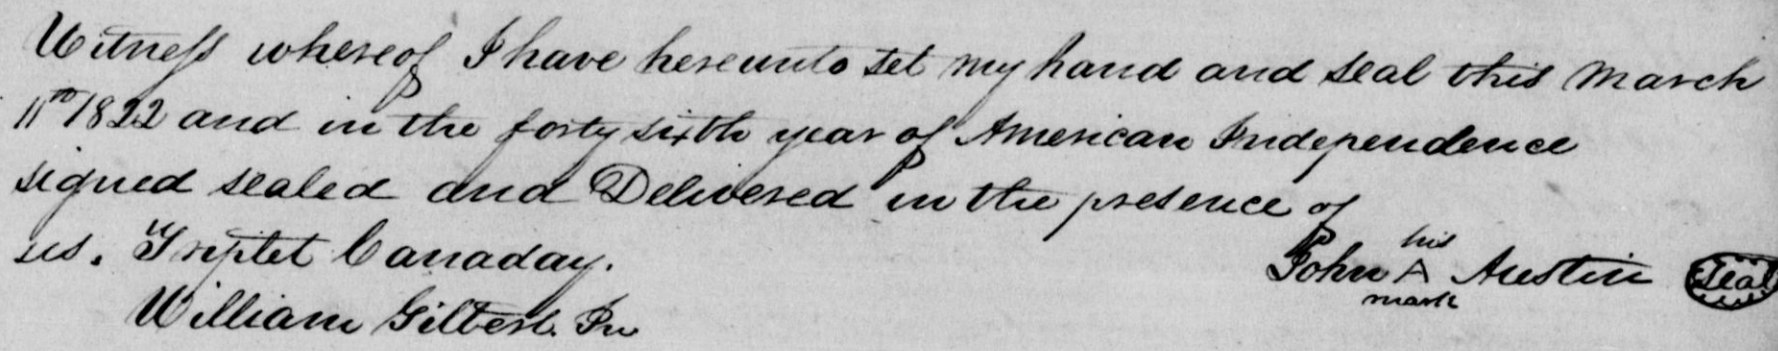 Witness whereof I have hereunto set my hand and seal this March
11th 1822 and in the forty sixth year of American Independence
signed sealed and Delivered in the presence of
us. Triplet Canaday.
his
John A Austin Seal
mark
William Gilbert. Jr